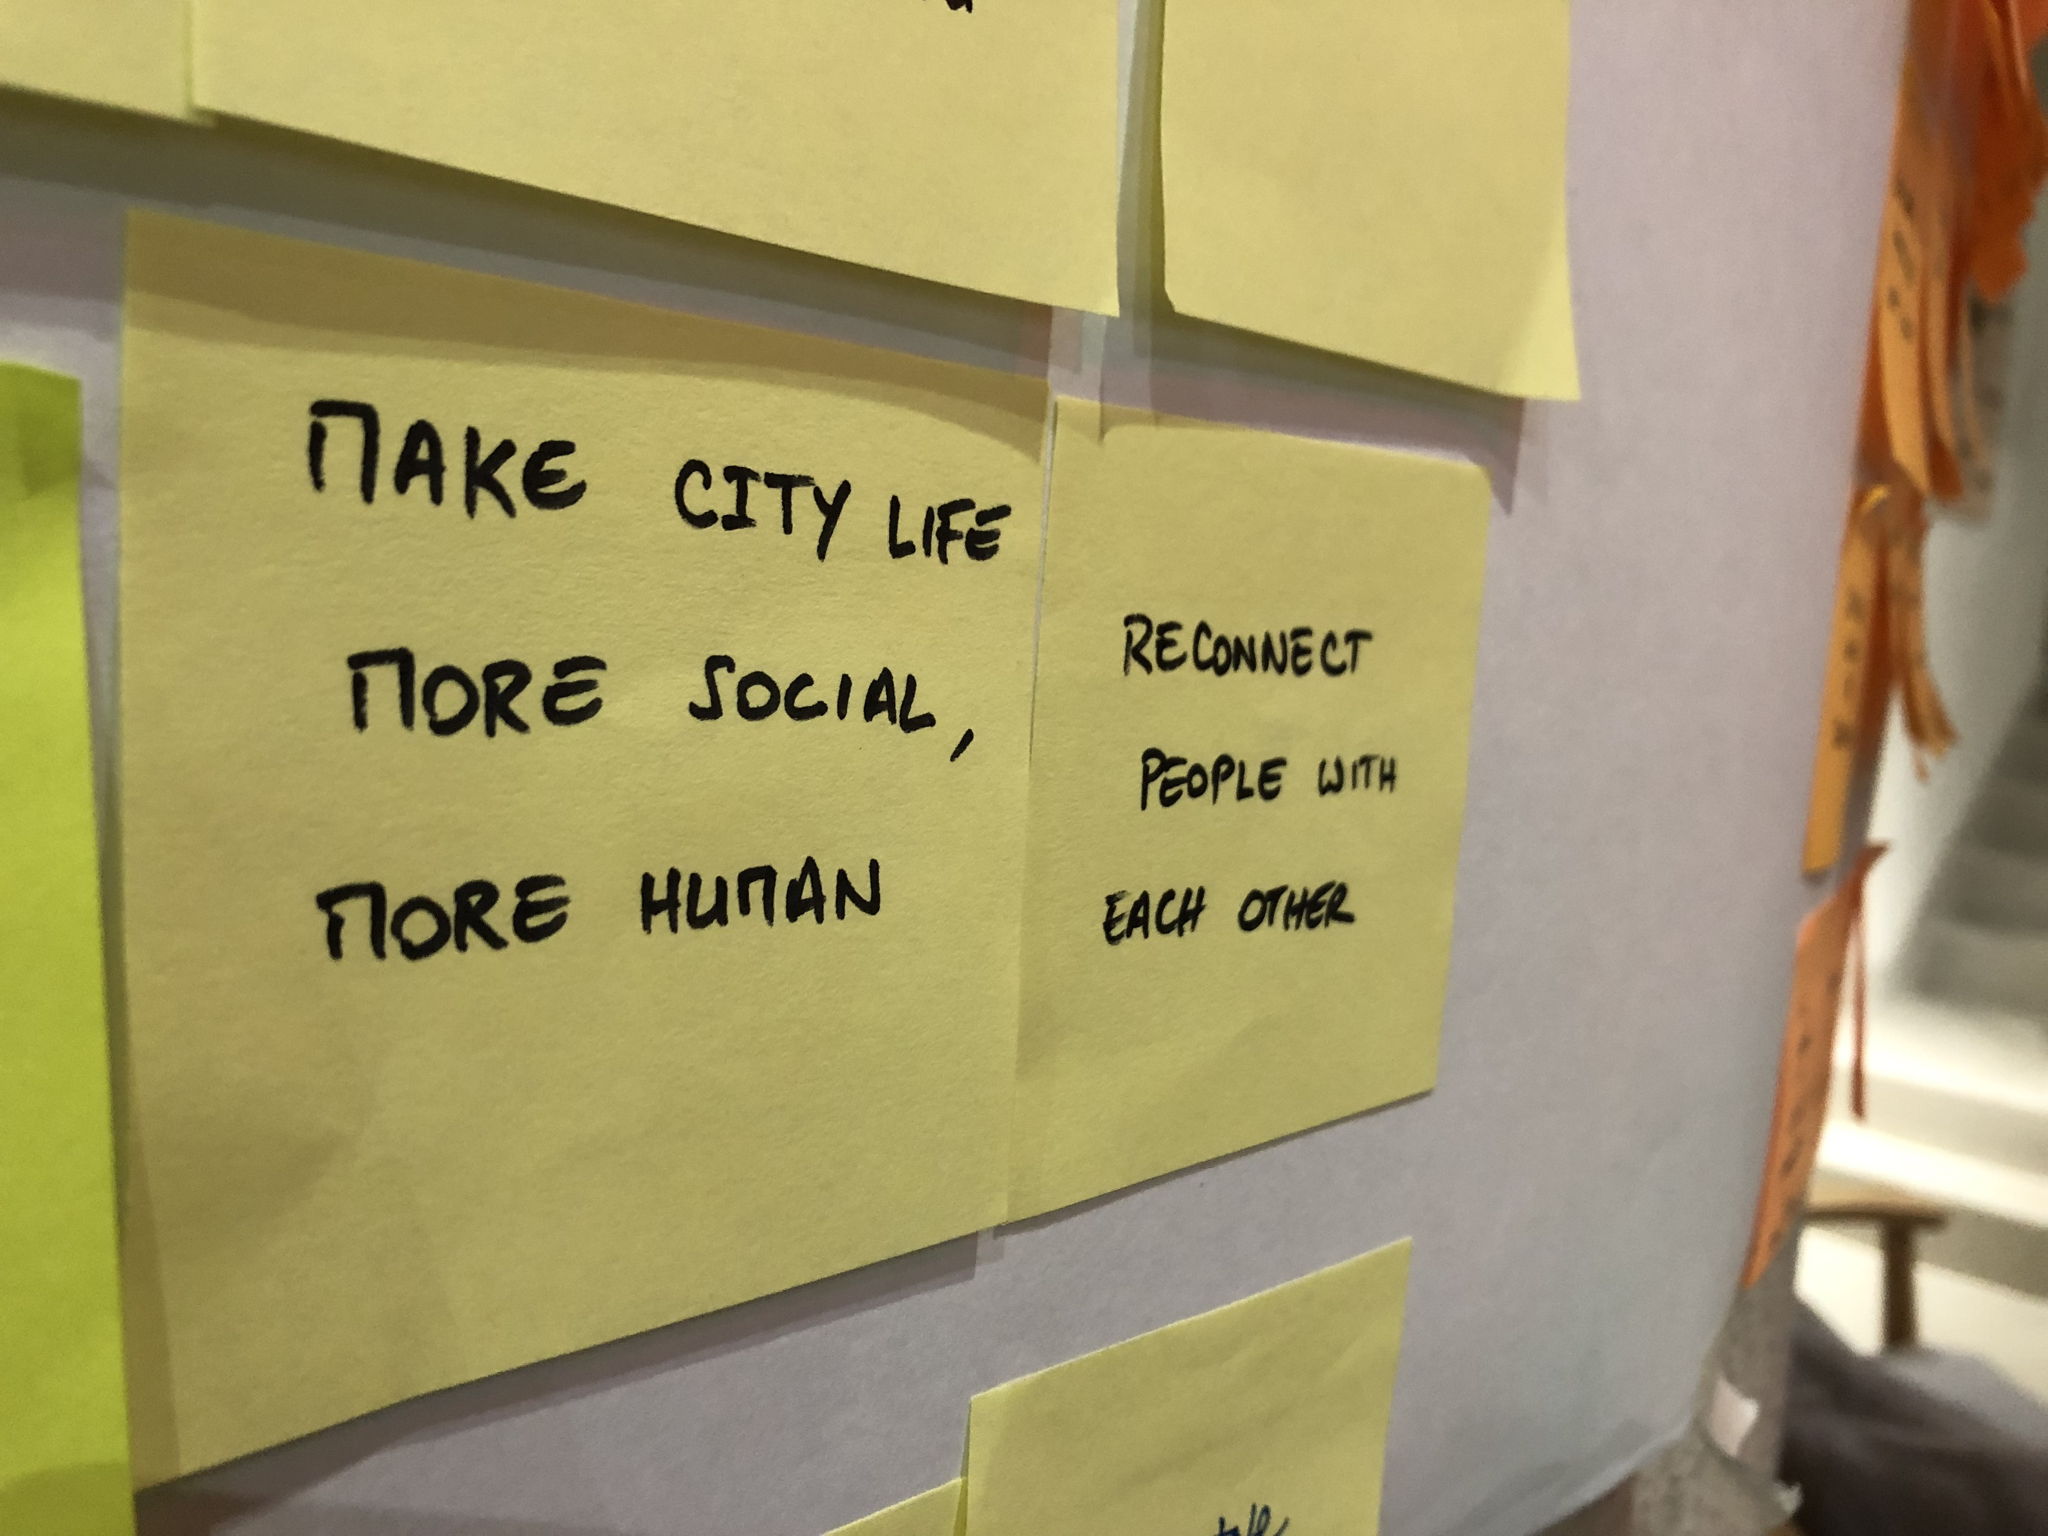 MAKE CITY LIFE
MORE SOCIAL,
MORE HUMAN
RECONNECT
PEOPLE WITH
EACH OTHER